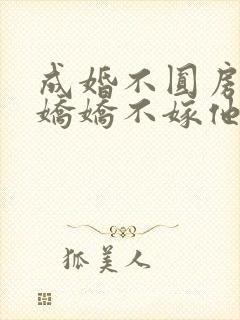 成婚不圆房
嬌嬌不嫁他
狐美人